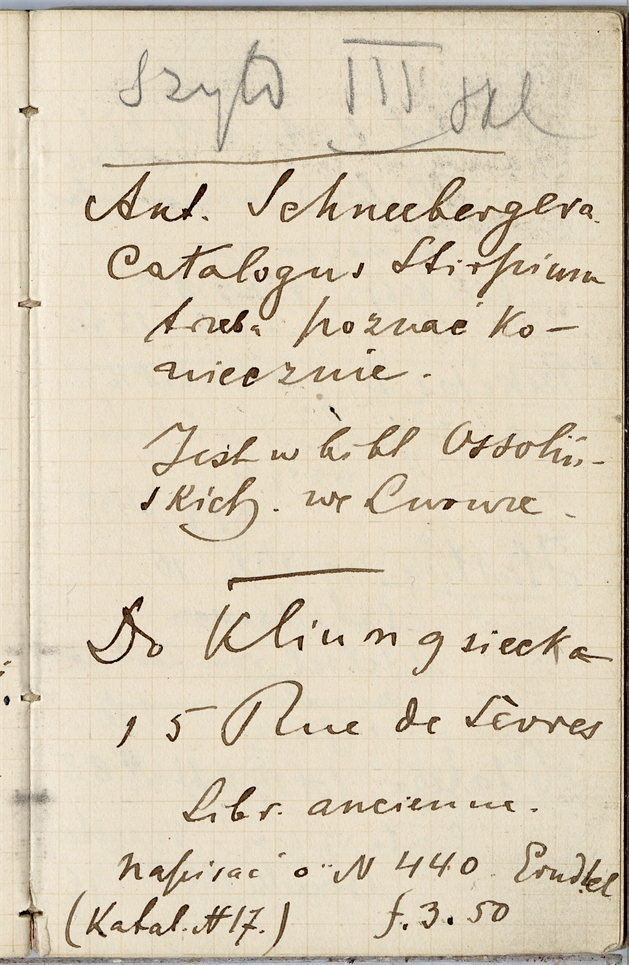 Szyło III skl
Ant. Schneebergera
Catalogus Stirpium
trzeba poznać ko-
niecznie.
Jest w bibl Ossoliń-
skich. we Lwowie.
Do Kliungsiecka
15 Rue de Sèvres
Libr. ancienne.
napisać o N 440 Erndtel
(Katal. # 17.) f. 3. 50